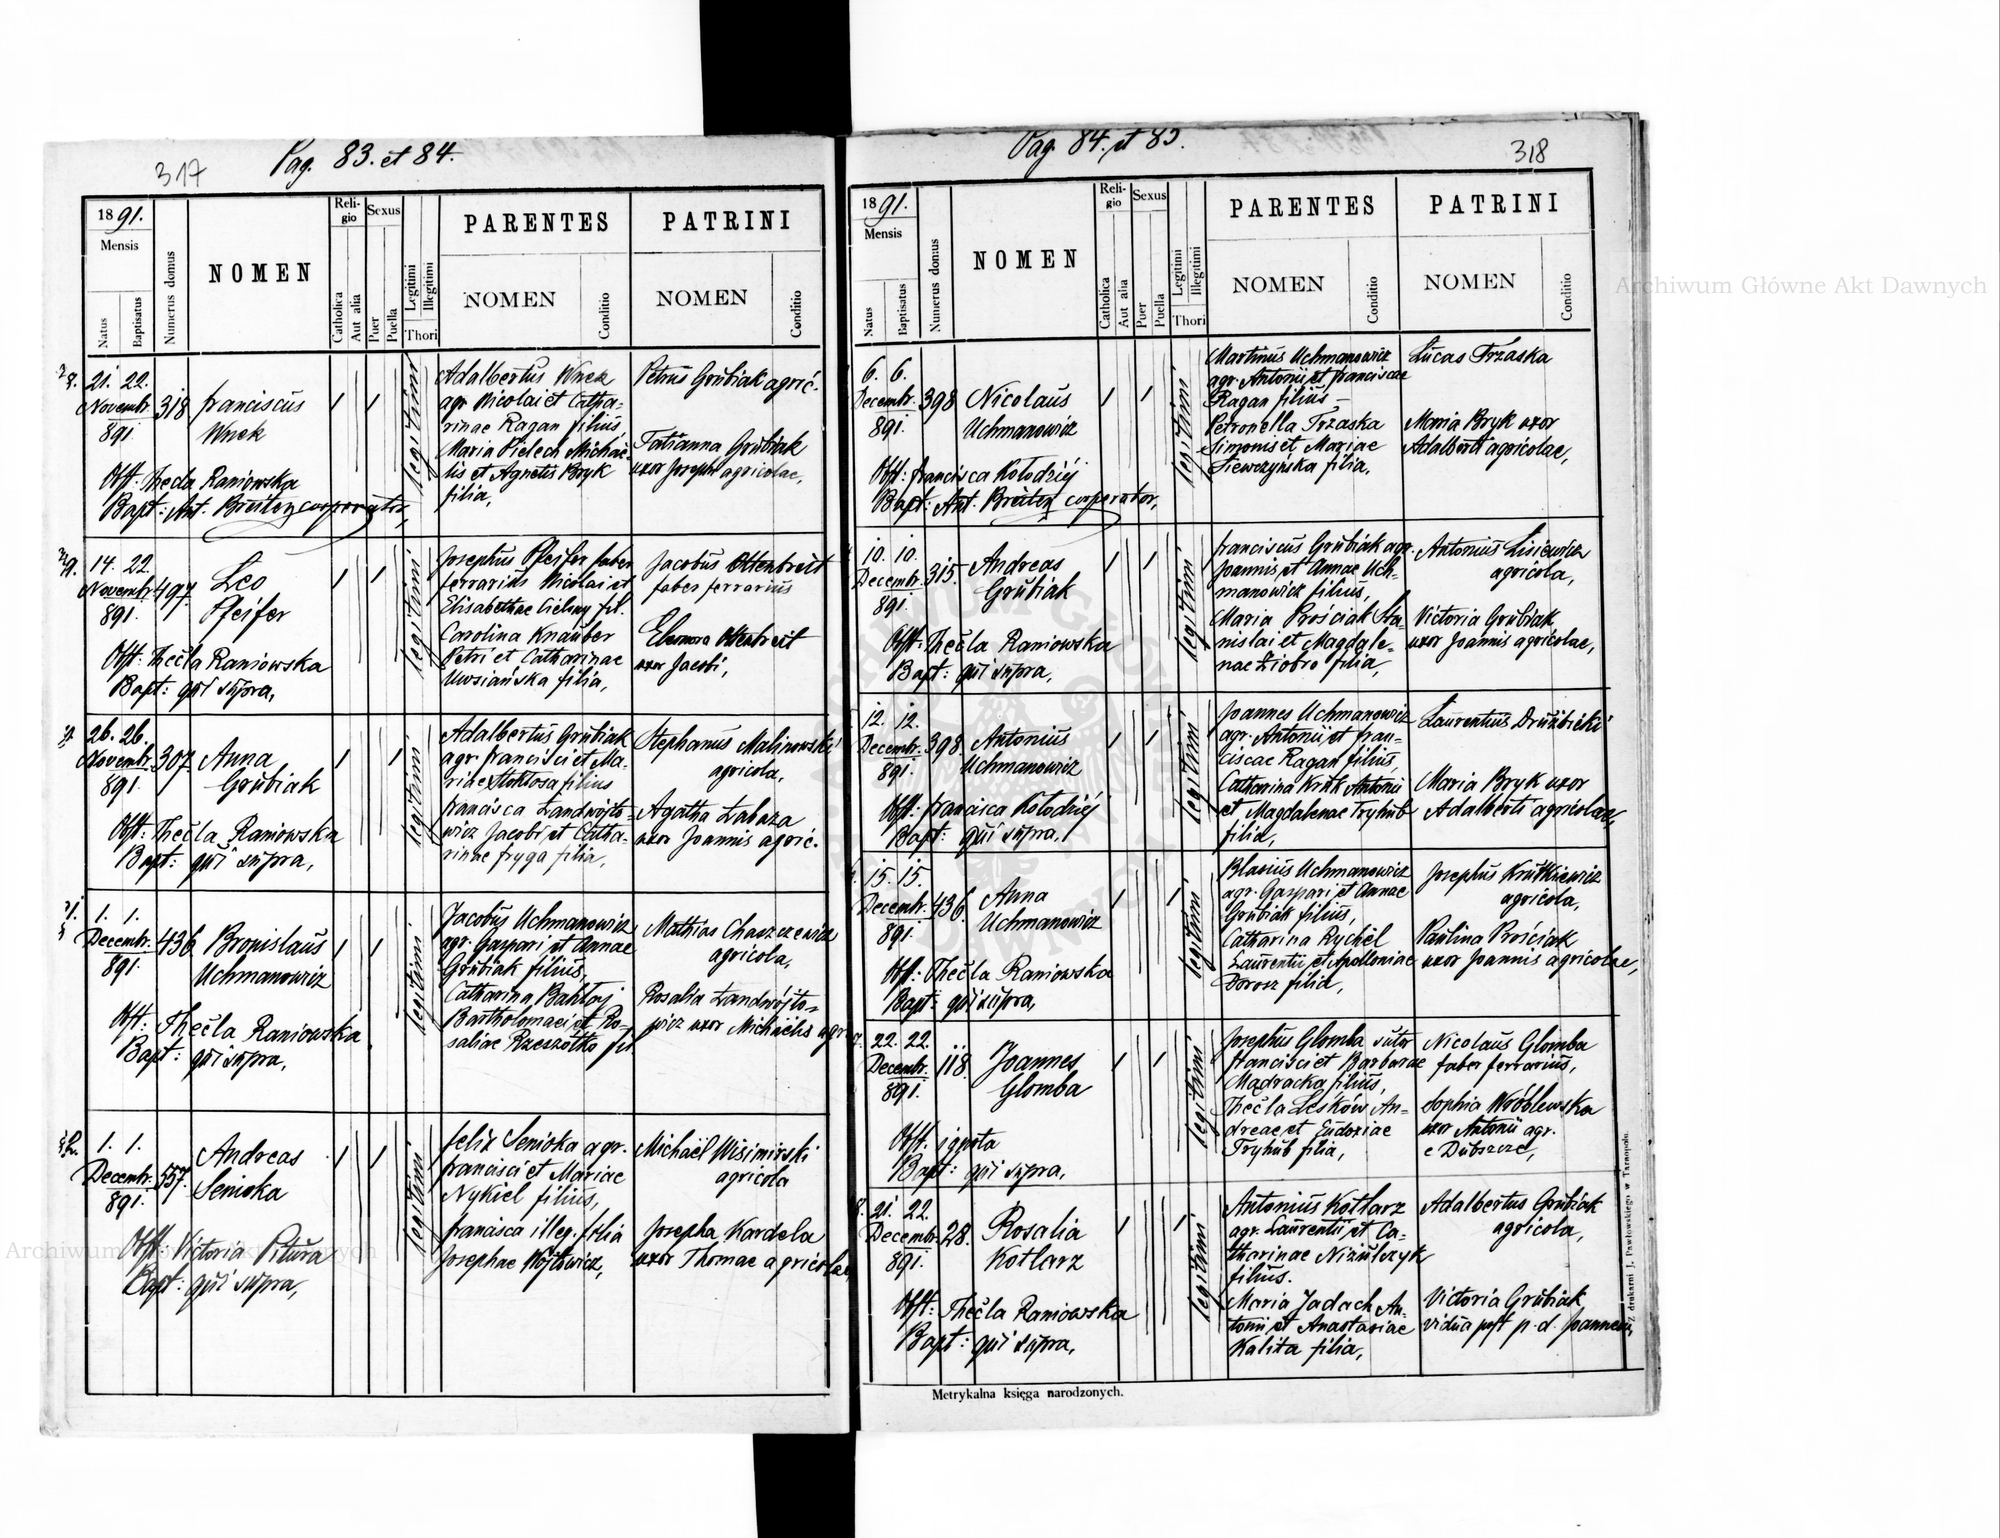 317
Pag. 83. et 84.
1891.
Mensis
Natus
Baptisatus
Numerus domus
NOMEN
Religio
Catholica
Aut alia
Sexus
Puer
Puella
Legitimi
Illegitimi
Thori
PARENTES
NOMEN
Conditio
PATRINI
NOMEN
Conditio
21. 22.
Novembr.
891.
318
Franciscus
Wnek
Obst: Thecla Raniowska
Bapt: Ant. Breiter cooperator,
legitimi
Adalbertus Wnek
agr. Nicolai et Catha-
rinae Ragan filius
Maria Pielech Michaë-
lis et Agnetis Bryk
filia,
Petrus Grubiak agric.
Tatianna Grubiak
uxor Josephi agricolae,
14. 22.
Novembr.
891.
497.
Leo
Pfeifer
Obst: Thecla Raniowska
Bapt: qui supra,
legitimi
Josephus Pfeifer faber
ferrarius Nicolai et
Elisabethae Cielny fil.
Carolina Knauber
Petri et Catharinae
Uwsiańska filia,
Jacobus Ottenbreit
faber ferrarius
Eleonora Ottenbreit
uxor Jacobi,
26. 26.
Novembr.
891.
307.
Anna
Grubiak
Obst: Thecla Raniowska
Bapt: qui supra,
legitimi
Adalbertus Grubiak
agr. Francisci et Ma-
riae Stokłosa filius
Francisca Landwójto-
wicz Jacobi et Catha-
rinae Fryga filia,
Stephanus Malinowski
agricola,
Agatha Labaza
uxor Joannis agric.
1. 1.
Decembr.
891.
436
Bronislaus
Uchmanowicz
Obst: Thecla Raniowska
Bapt: qui supra,
legitimi
Jacobus Uchmanowicz
agr. Gaspari et Annae
Grubiak filius,
Catharina Bahtaj
Bartholomaei et Ro-
saliae Rzeszótko fil.
Mathias Chaszczewicz
agricola,
Rosalia Landwójto-
wicz uxor Michaëlis agr.
1. 1.
Decembr.
891.
557.
Andreas
Senioka
Obst: Victoria Pitura
Bapt: qui supra,
legitimi
Felix Senioka agr.
Francisci et Mariae
Nykiel filius,
Francisca illeg. filia
Josephae Wójtowicz,
Michaël Wisimirski
agricola
Josepha Kardela
uxor Thomae agricolae,
Pag. 84. et 85.
318
1891.
Mensis
Natus
Baptisatus
Numerus domus
NOMEN
Religio
Catholica
Aut alia
Sexus
Puer
Puella
Legitimi
Illegitimi
Thori
PARENTES
NOMEN
Conditio
PATRINI
NOMEN
Conditio
6. 6.
Decembr.
891.
398
Nicolaus
Uchmanowicz
Obst: Francisca Kołodziéj
Bapt: Ant. Breiter cooperator,
legitimi
Martinus Uchmanowicz
agr. Antonii et Franciscae
Ragan filius -
Petronella Trzaska
Simonis et Mariae
Siewczyńska filia,
Lucas Trzaska
Maria Bryk uxor
Adalberti agricolae,
10. 10.
Decembr.
891.
315.
Andreas
Grubiak
Obst: Thecla Raniowska
Bapt: qui supra,
legitimi
Franciscus Grubiak agr.
Joannis et Annae Uch-
manowicz filius,
Maria Prościak Sta-
nislai et Magdale-
nae Ziobro filia,
Antonius Lisiewicz
agricola,
Victoria Grubiak
uxor Joannis agricolae,
12. 12.
Decembr.
891.
398
Antonius
Uchmanowicz
Obst: Francisca Kołodziéj
Bapt: qui supra,
legitimi
Joannes Uchmanowicz
agr. Antonii et Fran-
ciscae Ragan filius,
Catharina Kruk Antonii
et Magdalenae Tryhub
filia,
Laurentius Drużbicki
Maria Bryk uxor
Adalberti agricolae,
15. 15.
Decembr.
891.
436.
Anna
Uchmanowicz
Obst: Thecla Raniowska
Bapt: qui supra,
legitimi
Blasius Uchmanowicz
agr. Gaspari et Annae
Grubiak filius,
Catharina Rychel
Laurentii et Apolloniae
Dorosz filia,
Josephus Krutkiewicz
agricola,
Paulina Prościak
uxor Joannis agricolae,
22. 22.
Decembr.
891.
118.
Joannes
Glomba
Obst. ignota
Bapt: qui supra,
legitimi
Josephus Glomba sutor
Francisci et Barbarae
Mądracka filius,
Thecla Leśków An-
dreae et Eudoxiae
Tryhub filia,
Nicolaus Glomba
faber ferrarius,
Sophia Wróblewska
uxor Antonii agr.
e Dubszcze,
21. 22.
Decembr.
891.
28.
Rosalia
Kotlarz
Obst: Thecla Raniowska
Bapt: qui supra,
legitimi
Antonius Kotlarz
agr. Laurentii et Ca-
tharinae Niziulczyk
filius.
Maria Jadach An-
tonii et Anastasiae
Kalita filia,
Adalbertus Grubiak
agricola,
Victoria Grubiak
vidua post p. d. Joannem,
Metrykalna księga narodzonych.
Z drukarni J. Pawłowskiego w Tarnopolu.
Archiwum Główne Akt Dawnych